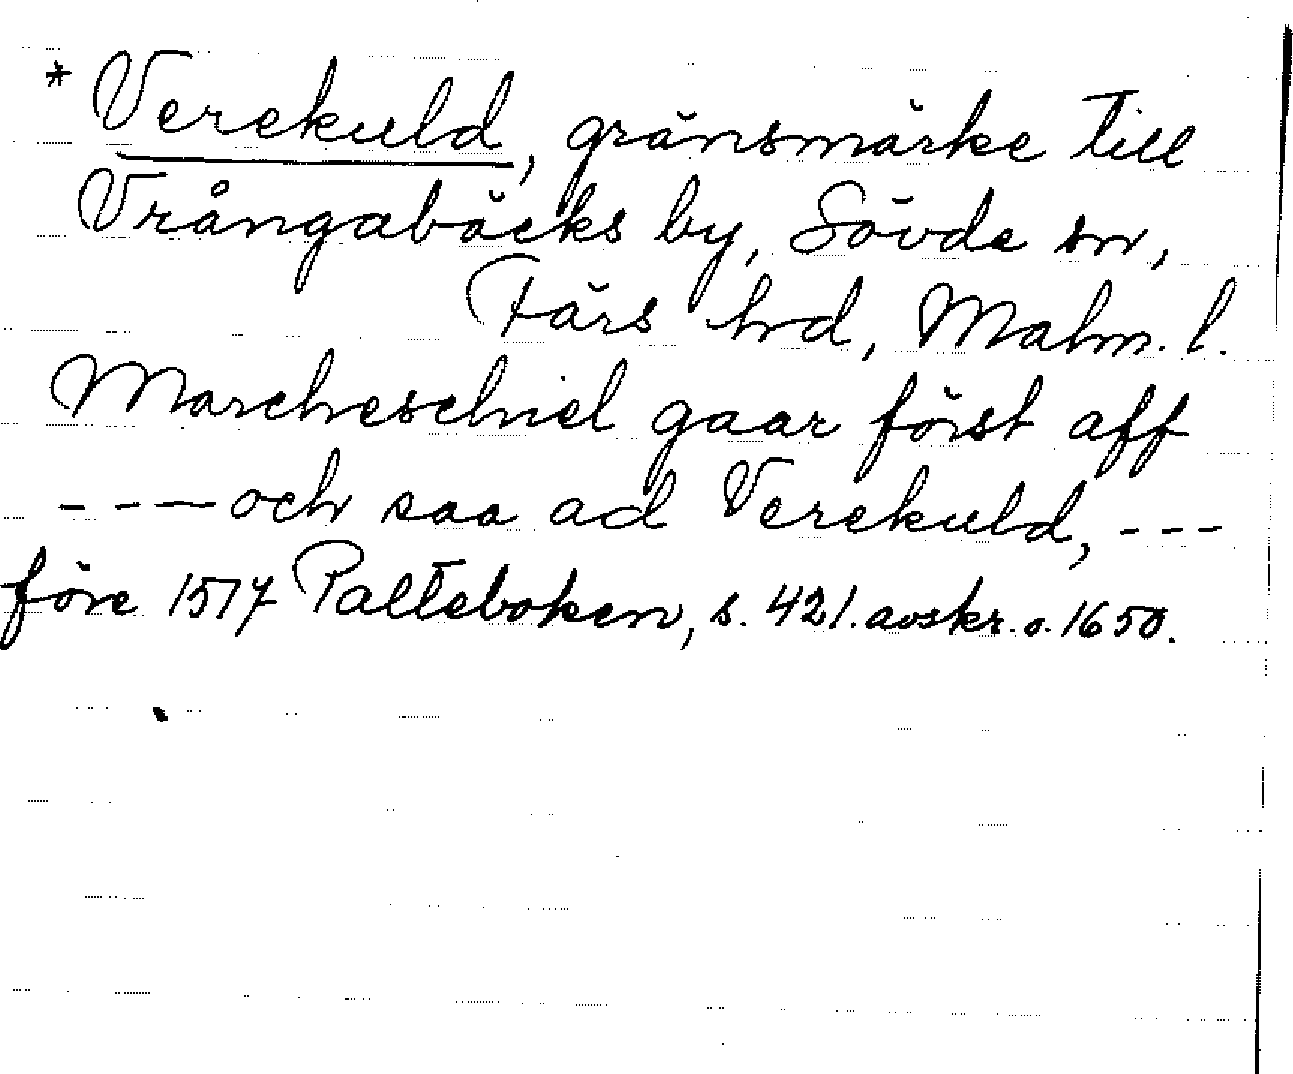 * Verekuld, gränsmärke till
Vrångabäcks by, Sövde sn,
Färs hd, Malm. l.
Marcheschiel gaar först aff
- - - och saa ad Verekuld, - - -
före 1517 Palteboken, s. 421. avskr. o. 1650.